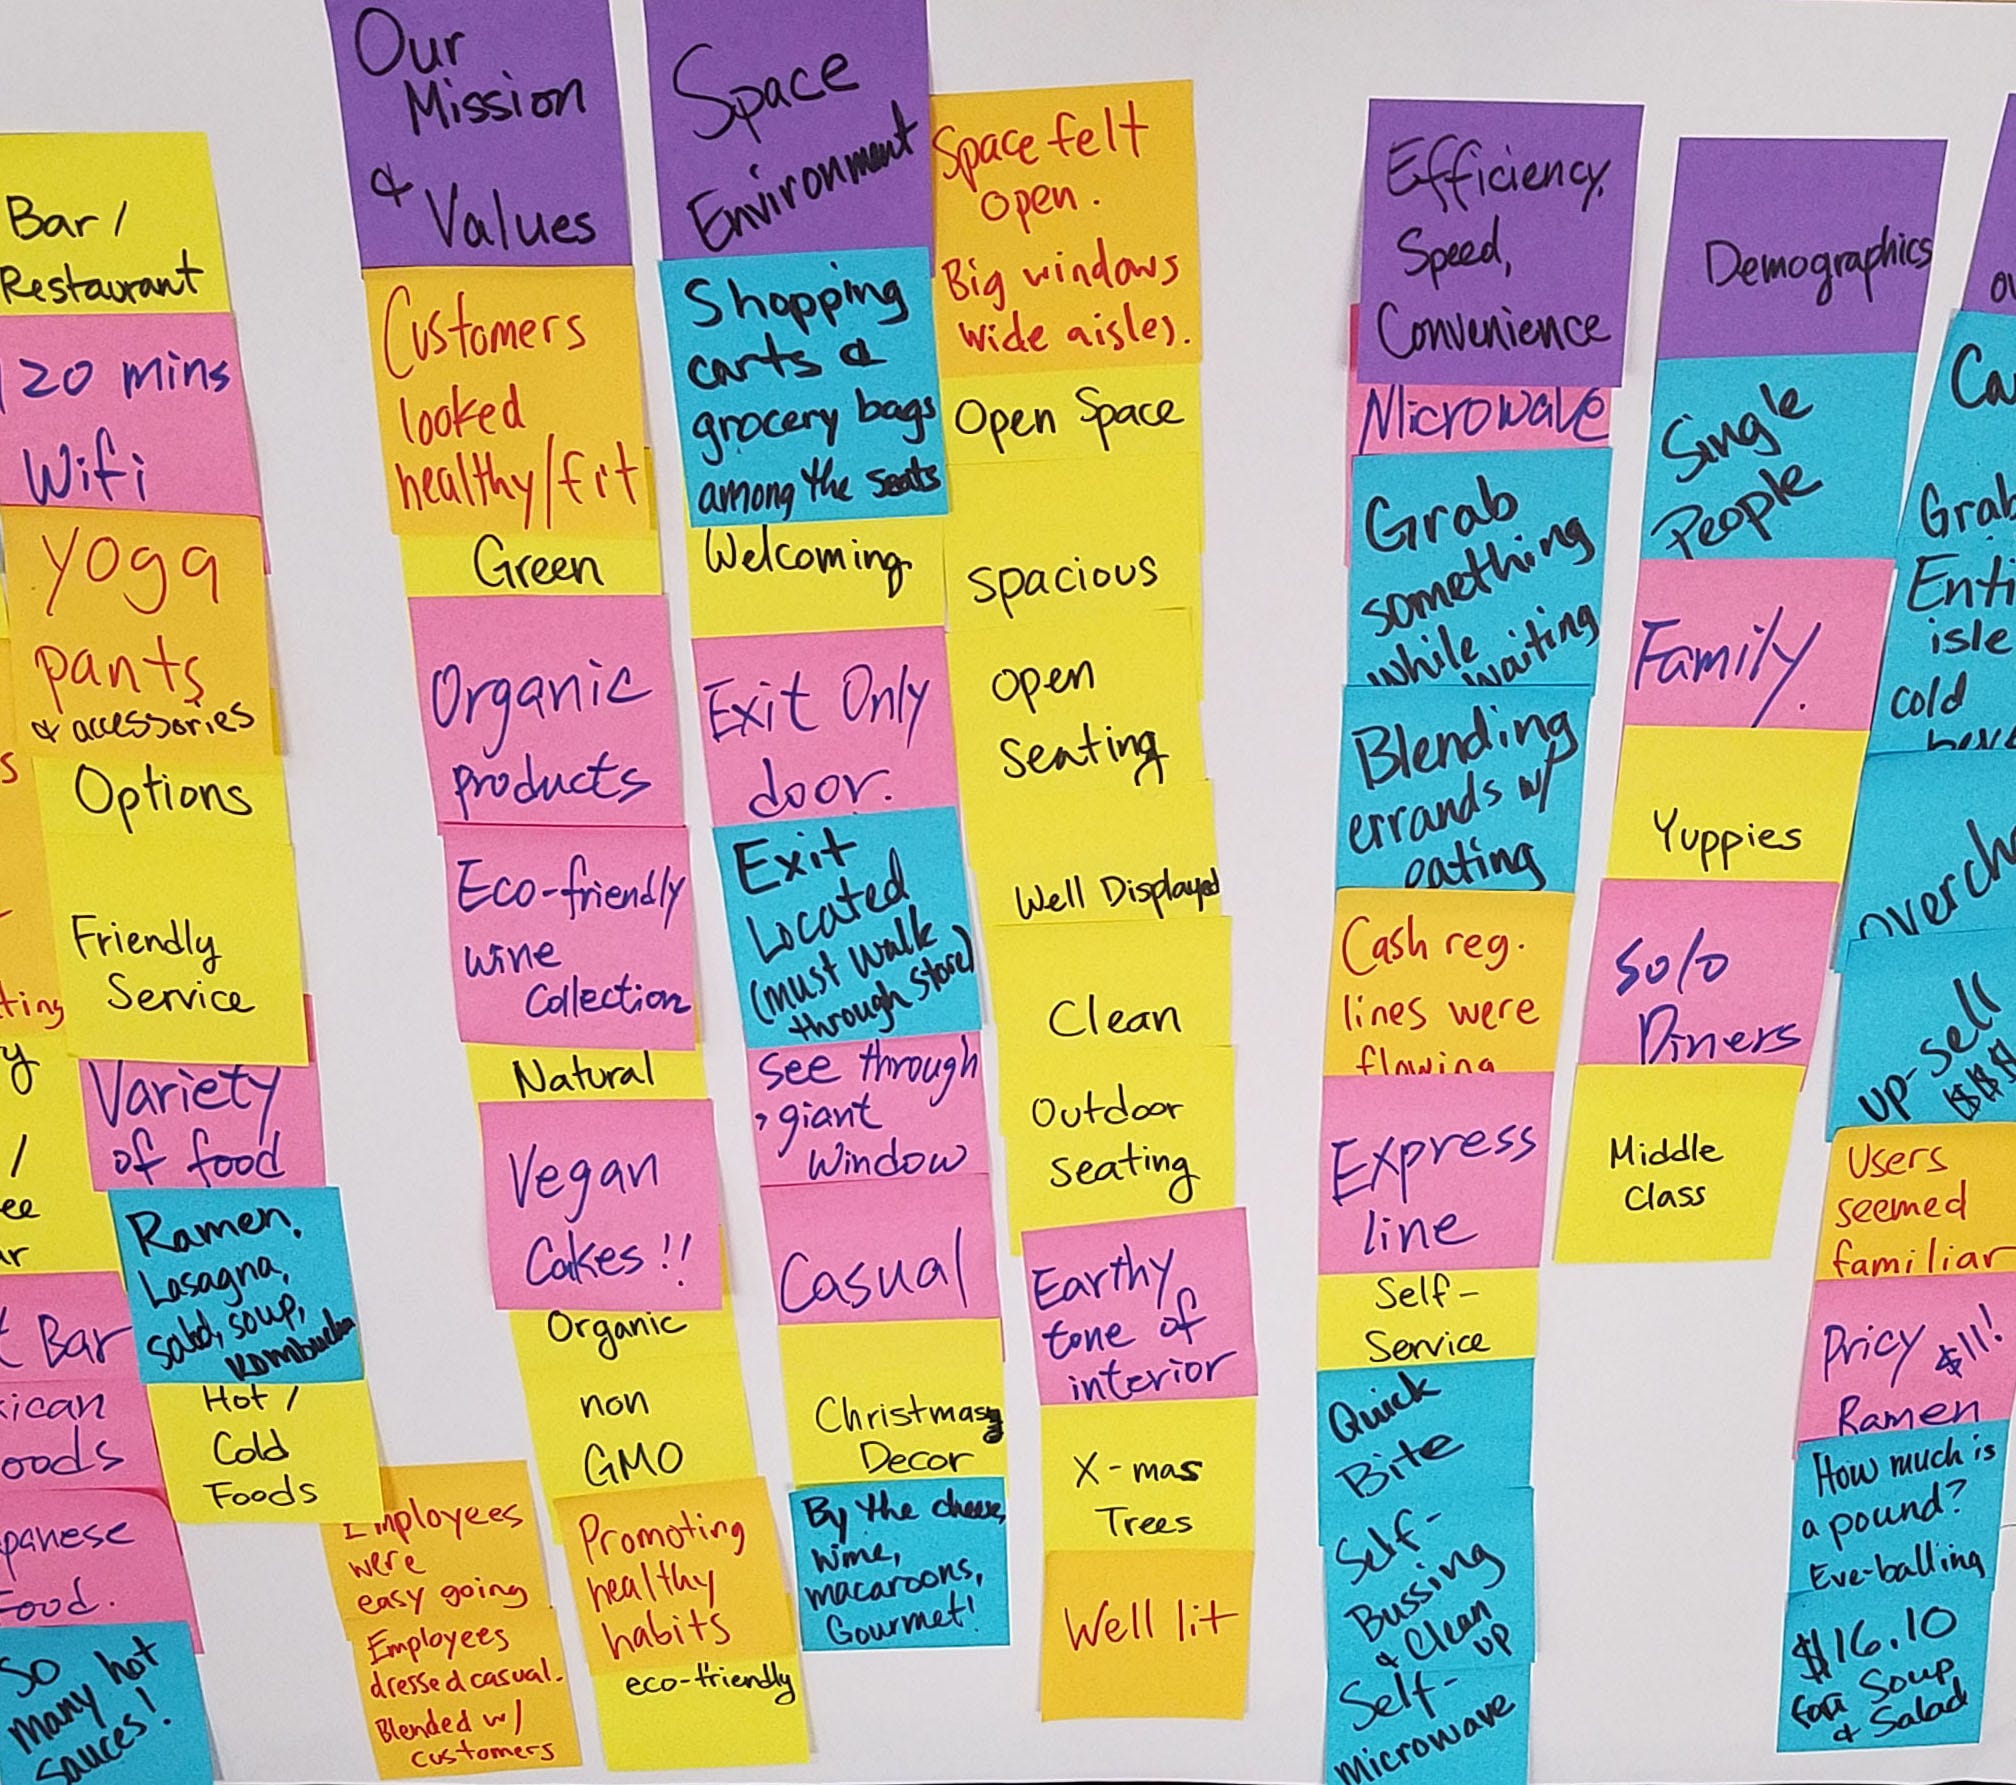 Bar /
Restaurant
120 mins
Wifi
Yoga
pants
& accessories
Options
Friendly
Service
Variety
of food
Ramen,
Lasagna,
salad, soup,
Kombucha
Hot /
Cold
Foods
Bar
panese
Food.
So
many hot
sauces!
Our
Mission
& Values
Customers
looked
healthy/fit
Green
Organic
products
Eco-friendly
wine
Collection
Natural
Vegan
Cakes!!
Organic
non
GMO
Promoting
healthy
habits
eco-friendly
Employees
were
easy going
Employees
dressed casual.
Blended w/
customers
Space
Environment
Shopping
carts &
grocery bags
among the seats
Welcoming
Exit Only
door.
Exit
Located
(must walk
through store)
see through
giant
window
Casual
Christmasy
Decor
By the cheese,
wine,
macaroons,
Gourmet!
Space felt
open.
Big windows
wide aisles.
Open Space
spacious
open
seating
Well Displayed
Clean
Outdoor
seating
Earthy
tone of
interior
X-mas
Trees
Well lit
Efficiency,
Speed,
Convenience
Microwave
Grab
something
while waiting
Blending
errands w/
eating
Cash reg.
lines were
flowing
Express
line
Self-
Service
Quick
Bite
Self-
Bussing
& Clean
up
Self-
Microwave
Demographics
Single
People
Family.
Yuppies
Solo
Diners
Middle
class
Grab
isle
cold
up-sell
$$$
Users
seemed
familiar
Pricy $11!
Ramen
How much is
a pound?
Eye-balling
$16.10
for a Soup
& Salad